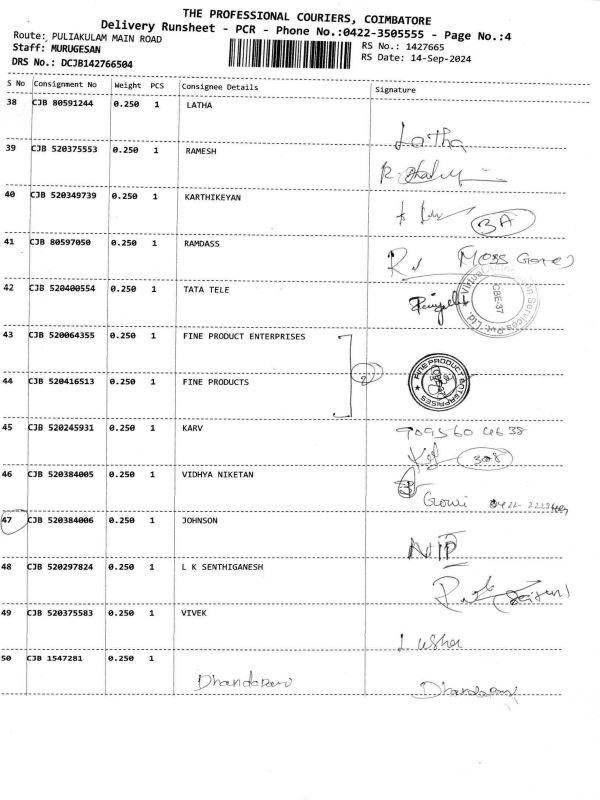 THE PROFESSIONAL COURIERS, COIMBATORE
Delivery Runsheet - PCR - Phone No.:0422-3505555 - Page No.:4
Route: PULIAKULAM MAIN ROAD
Staff: MURUGESAN
DRS No.: DCJB142766504
RS No.: 1427665
RS Date: 14-Sep-2024
S No Consignment No Weight PCS Consignee Details Signature
38 CJB 80591244 0.250 1 LATHA
Latha
39 CJB 520375553 0.250 1 RAMESH
40 CJB 520349739 0.250 1 KARTHIKEYAN
3A
41 CJB 80597050 0.250 1 RAMDASS
Moss
42 CJB 520400554 0.250 1 TATA TELE
CBE-37
Services Pvt. Ltd.
43 CJB 520064355 0.250 1 FINE PRODUCT ENTERPRISES
FINE PRODUCT ENTERPRISES
44 CJB 520416513 0.250 1 FINE PRODUCTS
2
45 CJB 520245931 0.250 1 KARV
909560 4638
308
46 CJB 520384005 0.250 1 VIDHYA NIKETAN
Gowri 0422-
47 CJB 520384006 0.250 1 JOHNSON
NIP
48 CJB 520297824 0.250 1 L K SENTHIGANESH
49 CJB 520375583 0.250 1 VIVEK
L usha
50 CJB 1547281 0.250 1 Dhandapani
Dhandapani